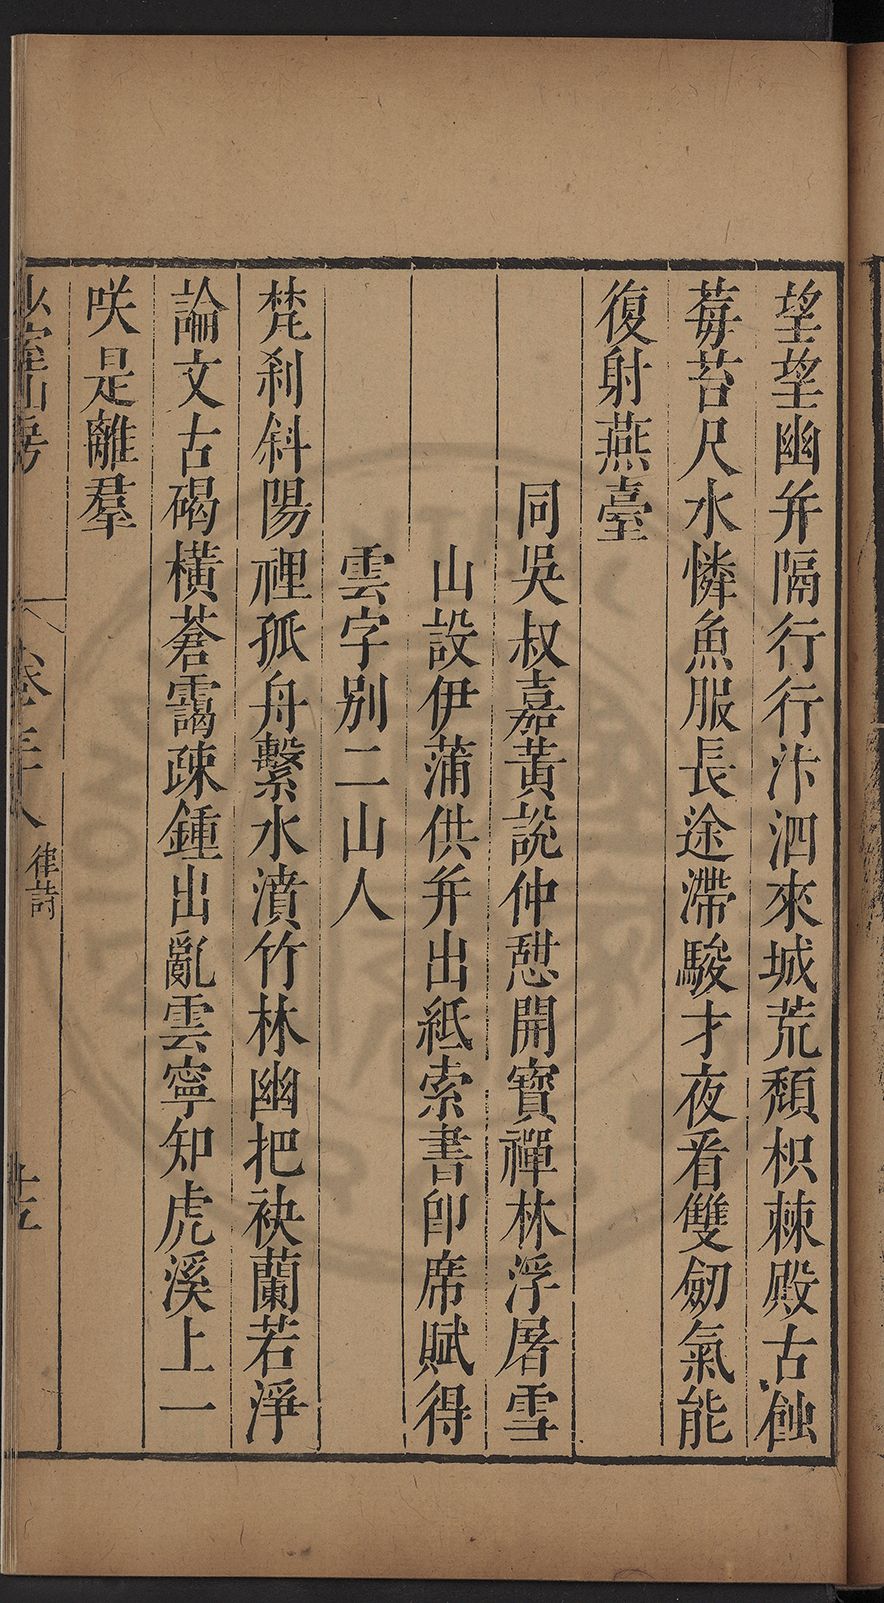 望望幽并隔行行汴泗來城荒頹枳棘殿古蝕
莓苔尺水憐魚服長途滯駿才夜看雙劒氣能
復射燕臺
同吳叔嘉黃說仲憩開寶禪林浮屠雪
山設伊蒲供并出紙索書卽席賦得
雲字別二山人
梵刹斜陽裡孤舟繫水濆竹林幽把袂蘭若淨
論文古碣橫蒼靄疎鍾出亂雲寧知虎溪上一
咲是離羣
少室山房
卷三十八
律詩